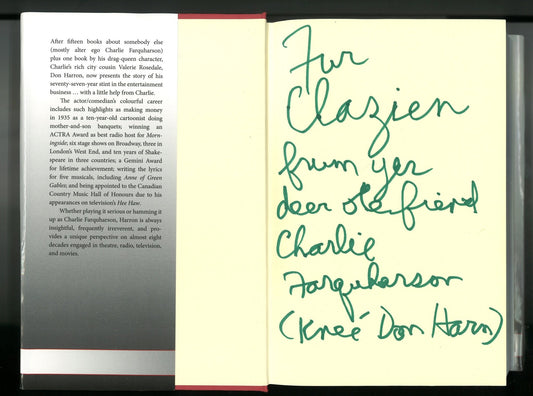 After fifteen books about somebody else
(mostly alter ego Charlie Farquharson)
plus one book by his drag-queen character,
Charlie's rich city cousin Valerie Rosedale,
Don Harron, now presents the story of his
seventy-seven-year stint in the entertainment
business ... with a little help from Charlie.
The actor/comedian's colourful career
includes such highlights as making money
in 1935 as a ten-year-old cartoonist doing
mother-and-son banquets; winning an
ACTRA Award as best radio host for Morn-
ingside; six stage shows on Broadway, three in
London's West End, and ten years of Shake-
speare in three countries; a Gemini Award
for lifetime achievement; writing the lyrics
for five musicals, including Anne of Green
Gables; and being appointed to the Canadian
Country Music Hall of Honours due to his
appearances on television's Hee Haw.
Whether playing it serious or hamming it
up as Charlie Farquharson, Harron is always
insightful, frequently irreverent, and pro-
vides a unique perspective on almost eight
decades engaged in theatre, radio, television,
and movies.
Fur
Clazien
frum yer
deer ole fiend
Charlie
Farquharson
(Kneé Don Harn)